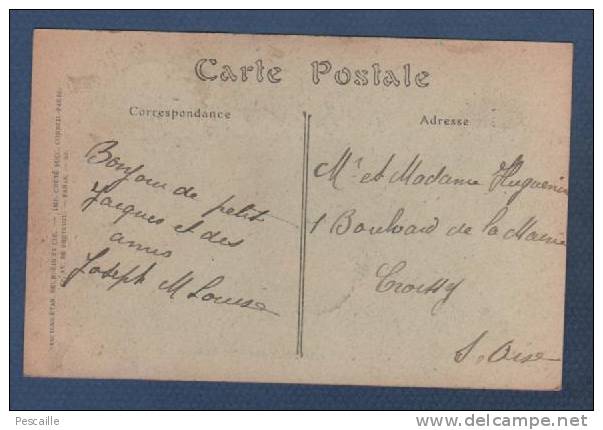 Carte Postale
Correspondance
Adresse
Bonjour de petit
Jacques et des
amis
Joseph M Louise
Mr et Madame Huguenin
1 Boulvard de la Mairie
Croissy
S. Oise
Pescaille
www.delcampe.net